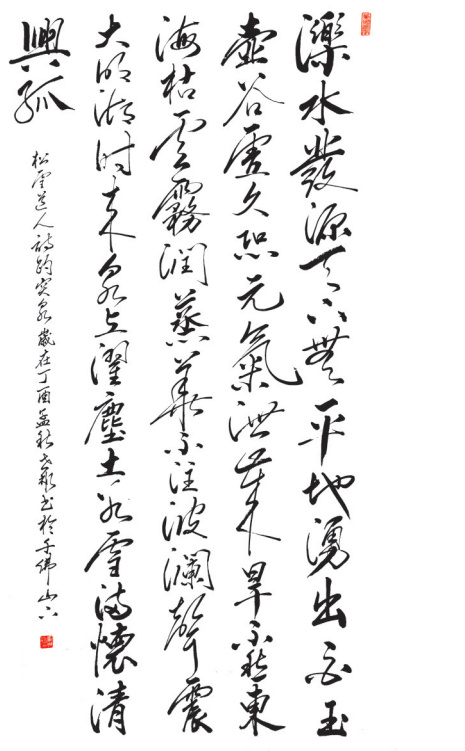 濼水發源天下無平地湧出白玉
壺谷虛久恐元氣泄歲旱不愁東
海枯云霧潤蒸華不注波瀾聲震
大明湖時来泉上濯塵土冰雪滿懷清
興孤
松雪道人詩趵突泉歲在丁酉孟秋書於千佛山下